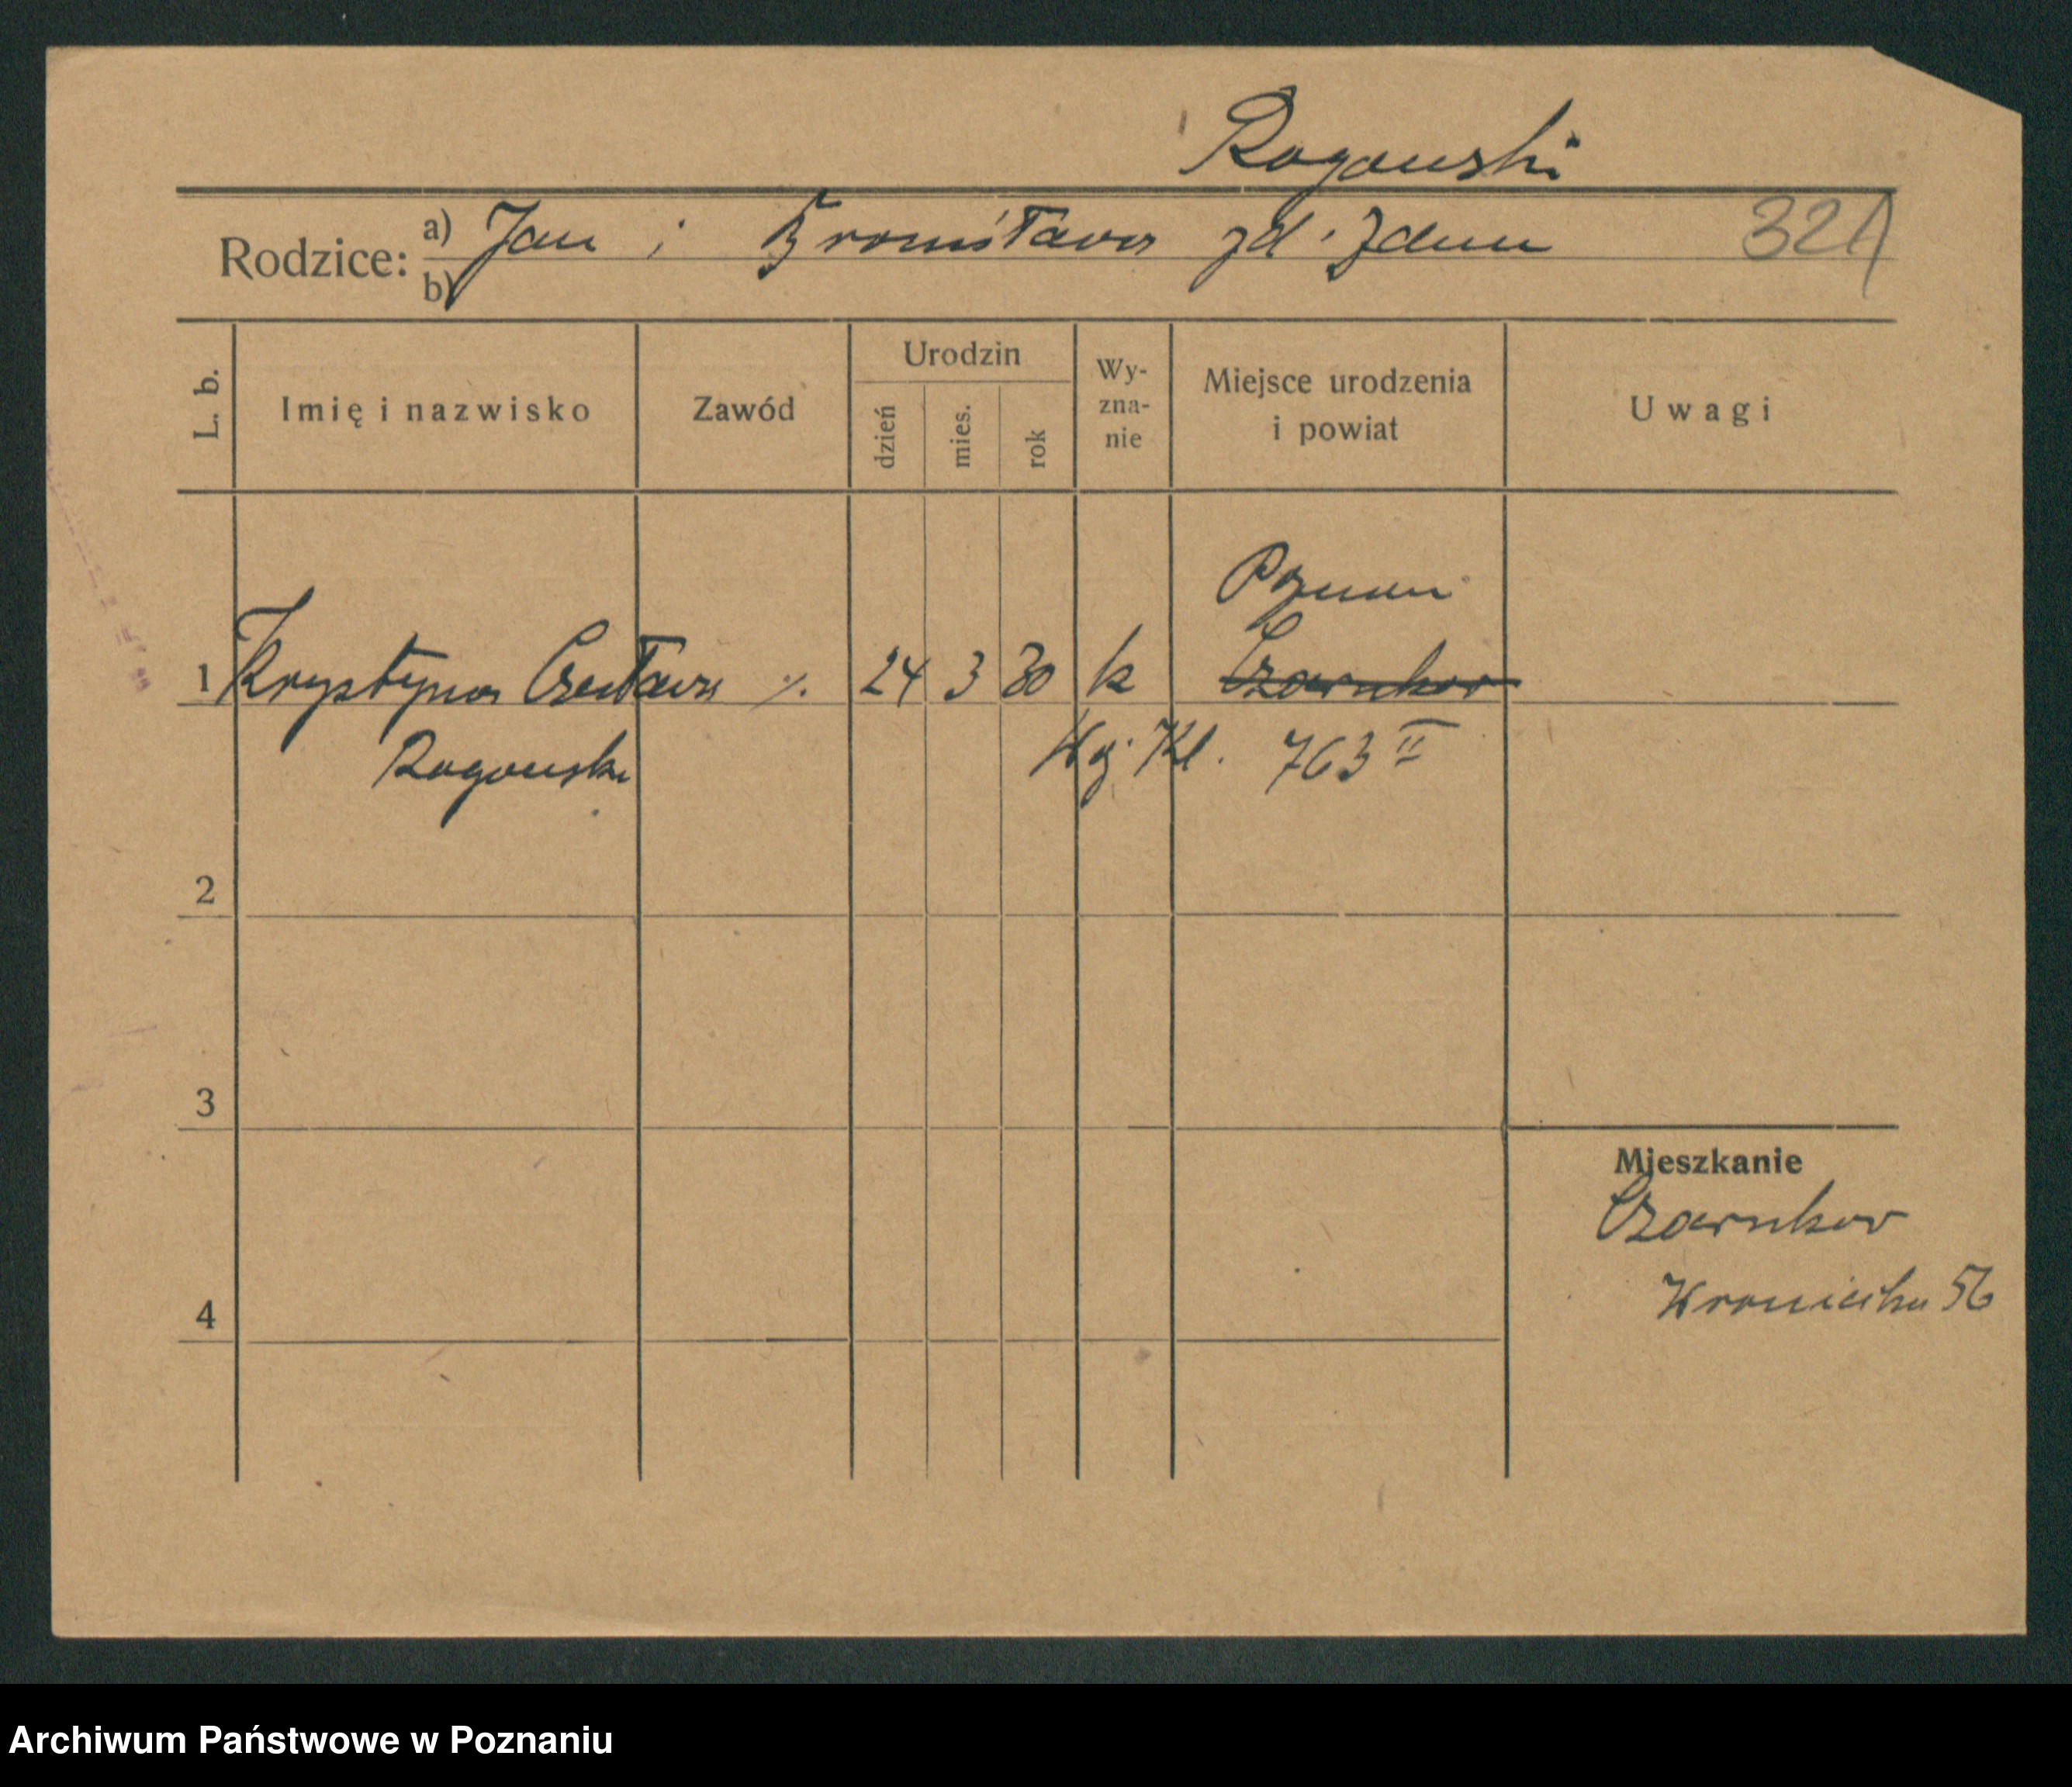 Rogowski
Rodzice: a) Jan i Bronisława zd. Zdun
b)
321
L. b. Imię i nazwisko Zawód Urodzin dzień mies. rok Wy-zna-nie Miejsce urodzenia i powiat Uwagi
Poznań
1 Krystyna Czesława ./. 24 3 30 k Czarnków
Rogowska Wg. Kl. 763 II
2
3
Mieszkanie
Czarnków
4
Wroniecka 56
Archiwum Państwowe w Poznaniu